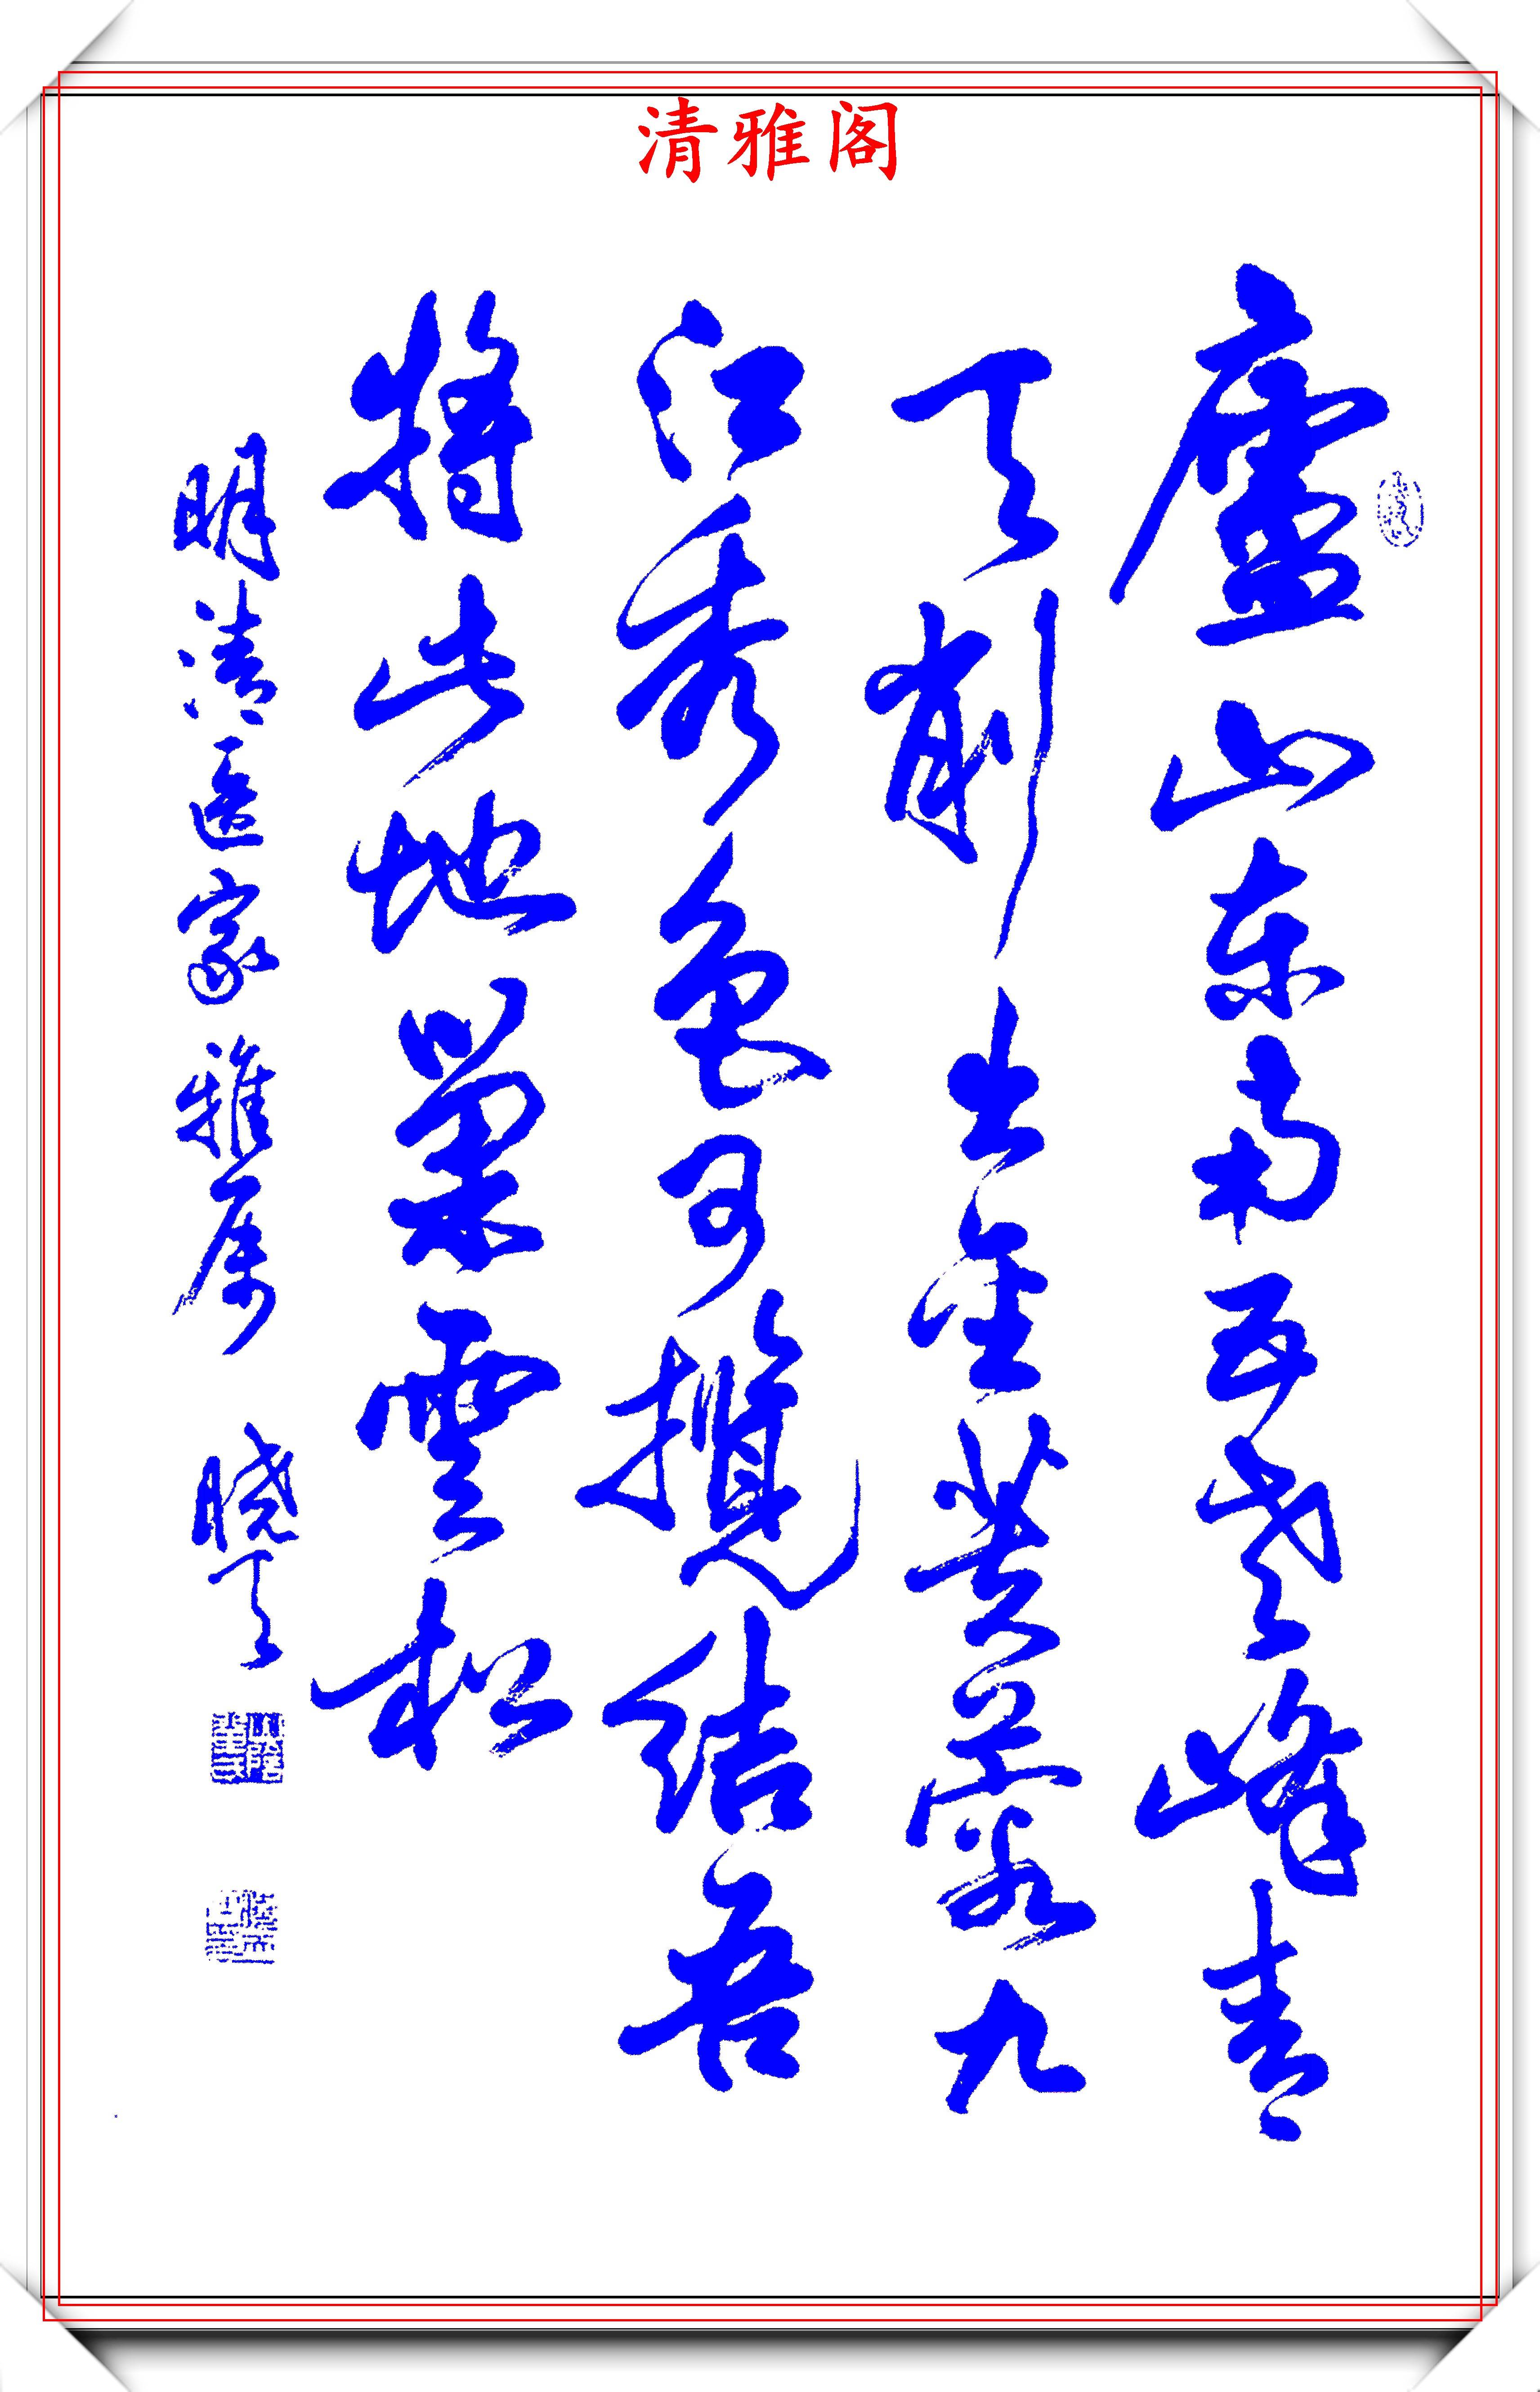 清雅阁
廬山东南五老峰青
天削出金芙蓉九
江秀色可揽结吾
将此地巢雲松
明清医家雅属 晓天